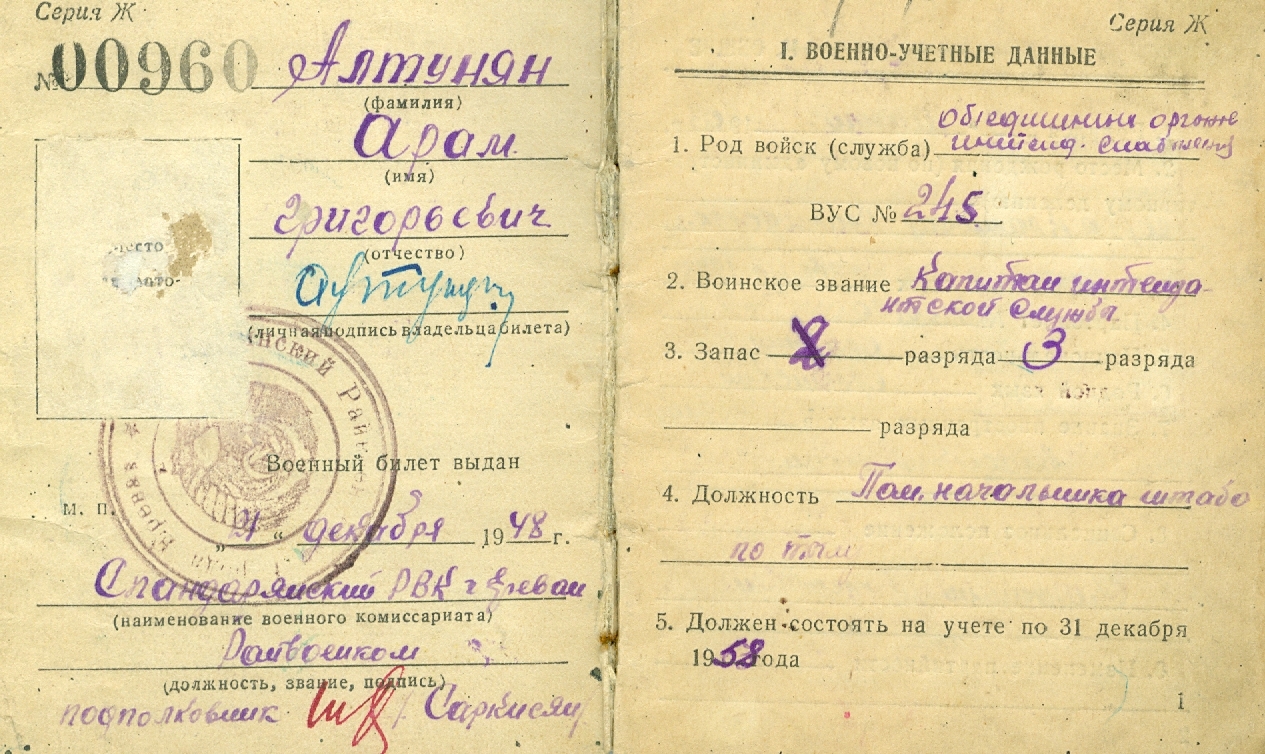 Серия Ж
№ 00960 Алтунян
(фамилия)
Арам
(имя)
Григорьевич
(отчество)
(личная подпись владельца билета)
Место
фото-
Военный билет выдан
М. П.
декабря 1948 г.
Спандарянский РВК г Ереван
(наименование военного комиссариата)
Райвоенком
(должность, звание, подпись)
подполковник Саркисян
Серия Ж
I. ВОЕННО-УЧЕТНЫЕ ДАННЫЕ
1. Род войск (служба)
интенд. снабжения
ВУС № 245
2. Воинское звание Капитан интенда-
нтской службы
3. Запас 2 разряда 3 разряда
разряда
4. Должность Пом. начальника штаба
по тылу
5. Должен состоять на учете по 31 декабря
1958 года
1